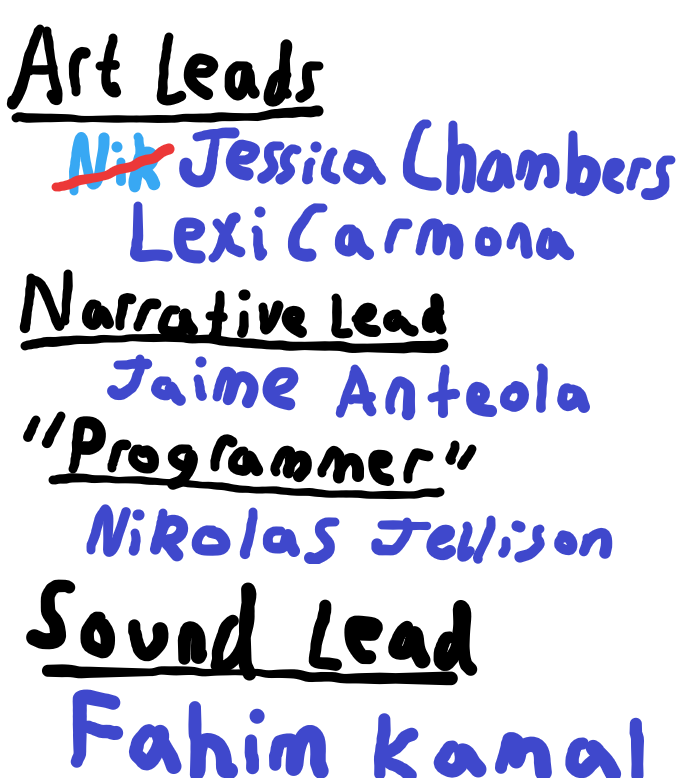 Art Leads
Nik Jessica Chambers
Lexi Carmona
Narrative Lead
Jaime Anteola
"Programmer"
Nikolas Jellison
Sound Lead
Fahim Kamal